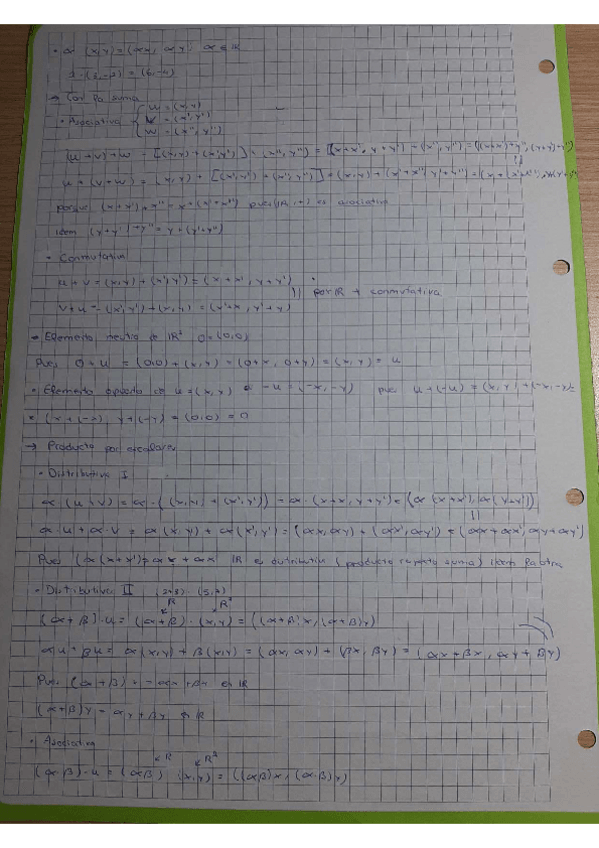 • α (x,y) = (αx, αy) α ∈ R
2·(3,-2) = (6,-4)
→ Con la suma
• Asociativa { u = (x,y)
v = (x',y')
w = (x'',y'')
(u+v)+w = [(x,y)+(x',y')]+(x'',y'') = [x+x', y+y']+(x'',y'') = ((x+x')+x'', (y+y')+y'')
u+(v+w) = (x,y)+[(x',y')+(x'',y'')] = (x,y)+(x'+x'', y'+y'') = (x+(x'+x''), y+(y'+y''))
porque (x+x')+x'' = x+(x'+x'') pues (IR,+) es asociativa
idem (y+y')+y'' = y+(y'+y'')
• Conmutativa
u+v = (x,y)+(x',y') = (x+x', y+y')
|| por IR + conmutativa
v+u = (x',y')+(x,y) = (x'+x, y'+y)
• Elemento neutro de IR² 0 = (0,0)
Pues 0+u = (0,0)+(x,y) = (0+x, 0+y) = (x,y) = u
• Elemento opuesto de u = (x,y) es -u = (-x,-y) pues u+(-u) = (x,y)+(-x,-y) =
= (x+(-x), y+(-y)) = (0,0) = 0
→ Producto por escalares
• Distributiva I
α·(u+v) = α·((x,y)+(x',y')) = α·(x+x', y+y') = (α(x+x'), α(y+y'))
||
α·u+α·v = α(x,y)+α(x',y') = (αx,αy)+(αx',αy') = (αx+αx', αy+αy')
Pues (α(x+x') = αx+αx' IR es distributiva (producto respecto suma) idem
• Distributiva II (2+3)·(5,7)
R R²
(α+β)·u = (α+β)·(x,y) = ((α+β)x, (α+β)y)
αu+βu = α(x,y)+β(x,y) = (αx,αy)+(βx,βy) = (αx+βx, αy+βy)
Pues (α+β)x = αx+βx en IR
(α+β)y = αy+βy en IR
• Asociativa
R R²
(α·β)·u = (αβ)·(x,y) = ((αβ)x, (α·β)y)